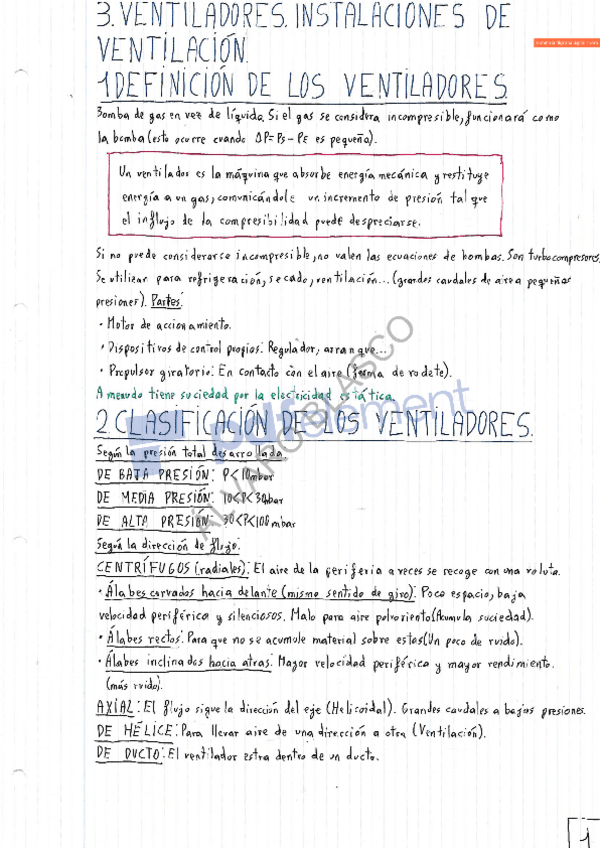 3.VENTILADORES. INSTALACIONES DE
VENTILACIÓN.
1 DEFINICIÓN DE LOS VENTILADORES
Bomba de gas en vez de líquido. Si el gas se considera incompresible, funcionará como
la bomba (esto ocurre cuando ΔP=Ps-PE es pequeña).
Un ventilador es la máquina que absorbe energía mecánica y restituye
energía a un gas, comunicándole un incremento de presión tal que
el influjo de la compresibilidad puede despreciarse.
Si no puede considerarse incompresible, no valen las ecuaciones de bombas. Son turbocompresores.
Se utilizan para refrigeración, secado, ventilación... (grandes caudales de aire a pequeñas
presiones). Partes:
· Motor de accionamiento.
· Dispositivos de control propios: Regulador, arranque...
· Propulsor giratorio: En contacto con el aire (forma de rodete).
A menudo tiene suciedad por la electricidad estática.
2.CLASIFICACIÓN DE LOS VENTILADORES.
Según la presión total desarrollada
DE BAJA PRESIÓN: P<10mbar
DE MEDIA PRESIÓN: 10<P<30mbar
DE ALTA PRESIÓN: 30<P<100mbar
Según la dirección de flujo:
CENTRÍFUGOS (radiales): El aire de la periferia a veces se recoge con una voluta.
· Álabes curvados hacia delante (mismo sentido de giro): Poco espacio, baja
velocidad periférica y silenciosos. Malo para aire polvoriento (Acumula suciedad).
· Álabes rectos: Para que no se acumule material sobre estos (Un poco de ruido).
· Álabes inclinados hacia atras: Mayor velocidad periférica y mayor rendimiento.
(más ruido).
AXIAL: El flujo sigue la dirección del eje (Helicoidal). Grandes caudales a bajas presiones.
DE HÉLICE: Para llevar aire de una dirección a otra (Ventilación).
DE DUCTO: El ventilador estra dentro de un ducto.
1
ÁLVARO BLASCO
pdfelement